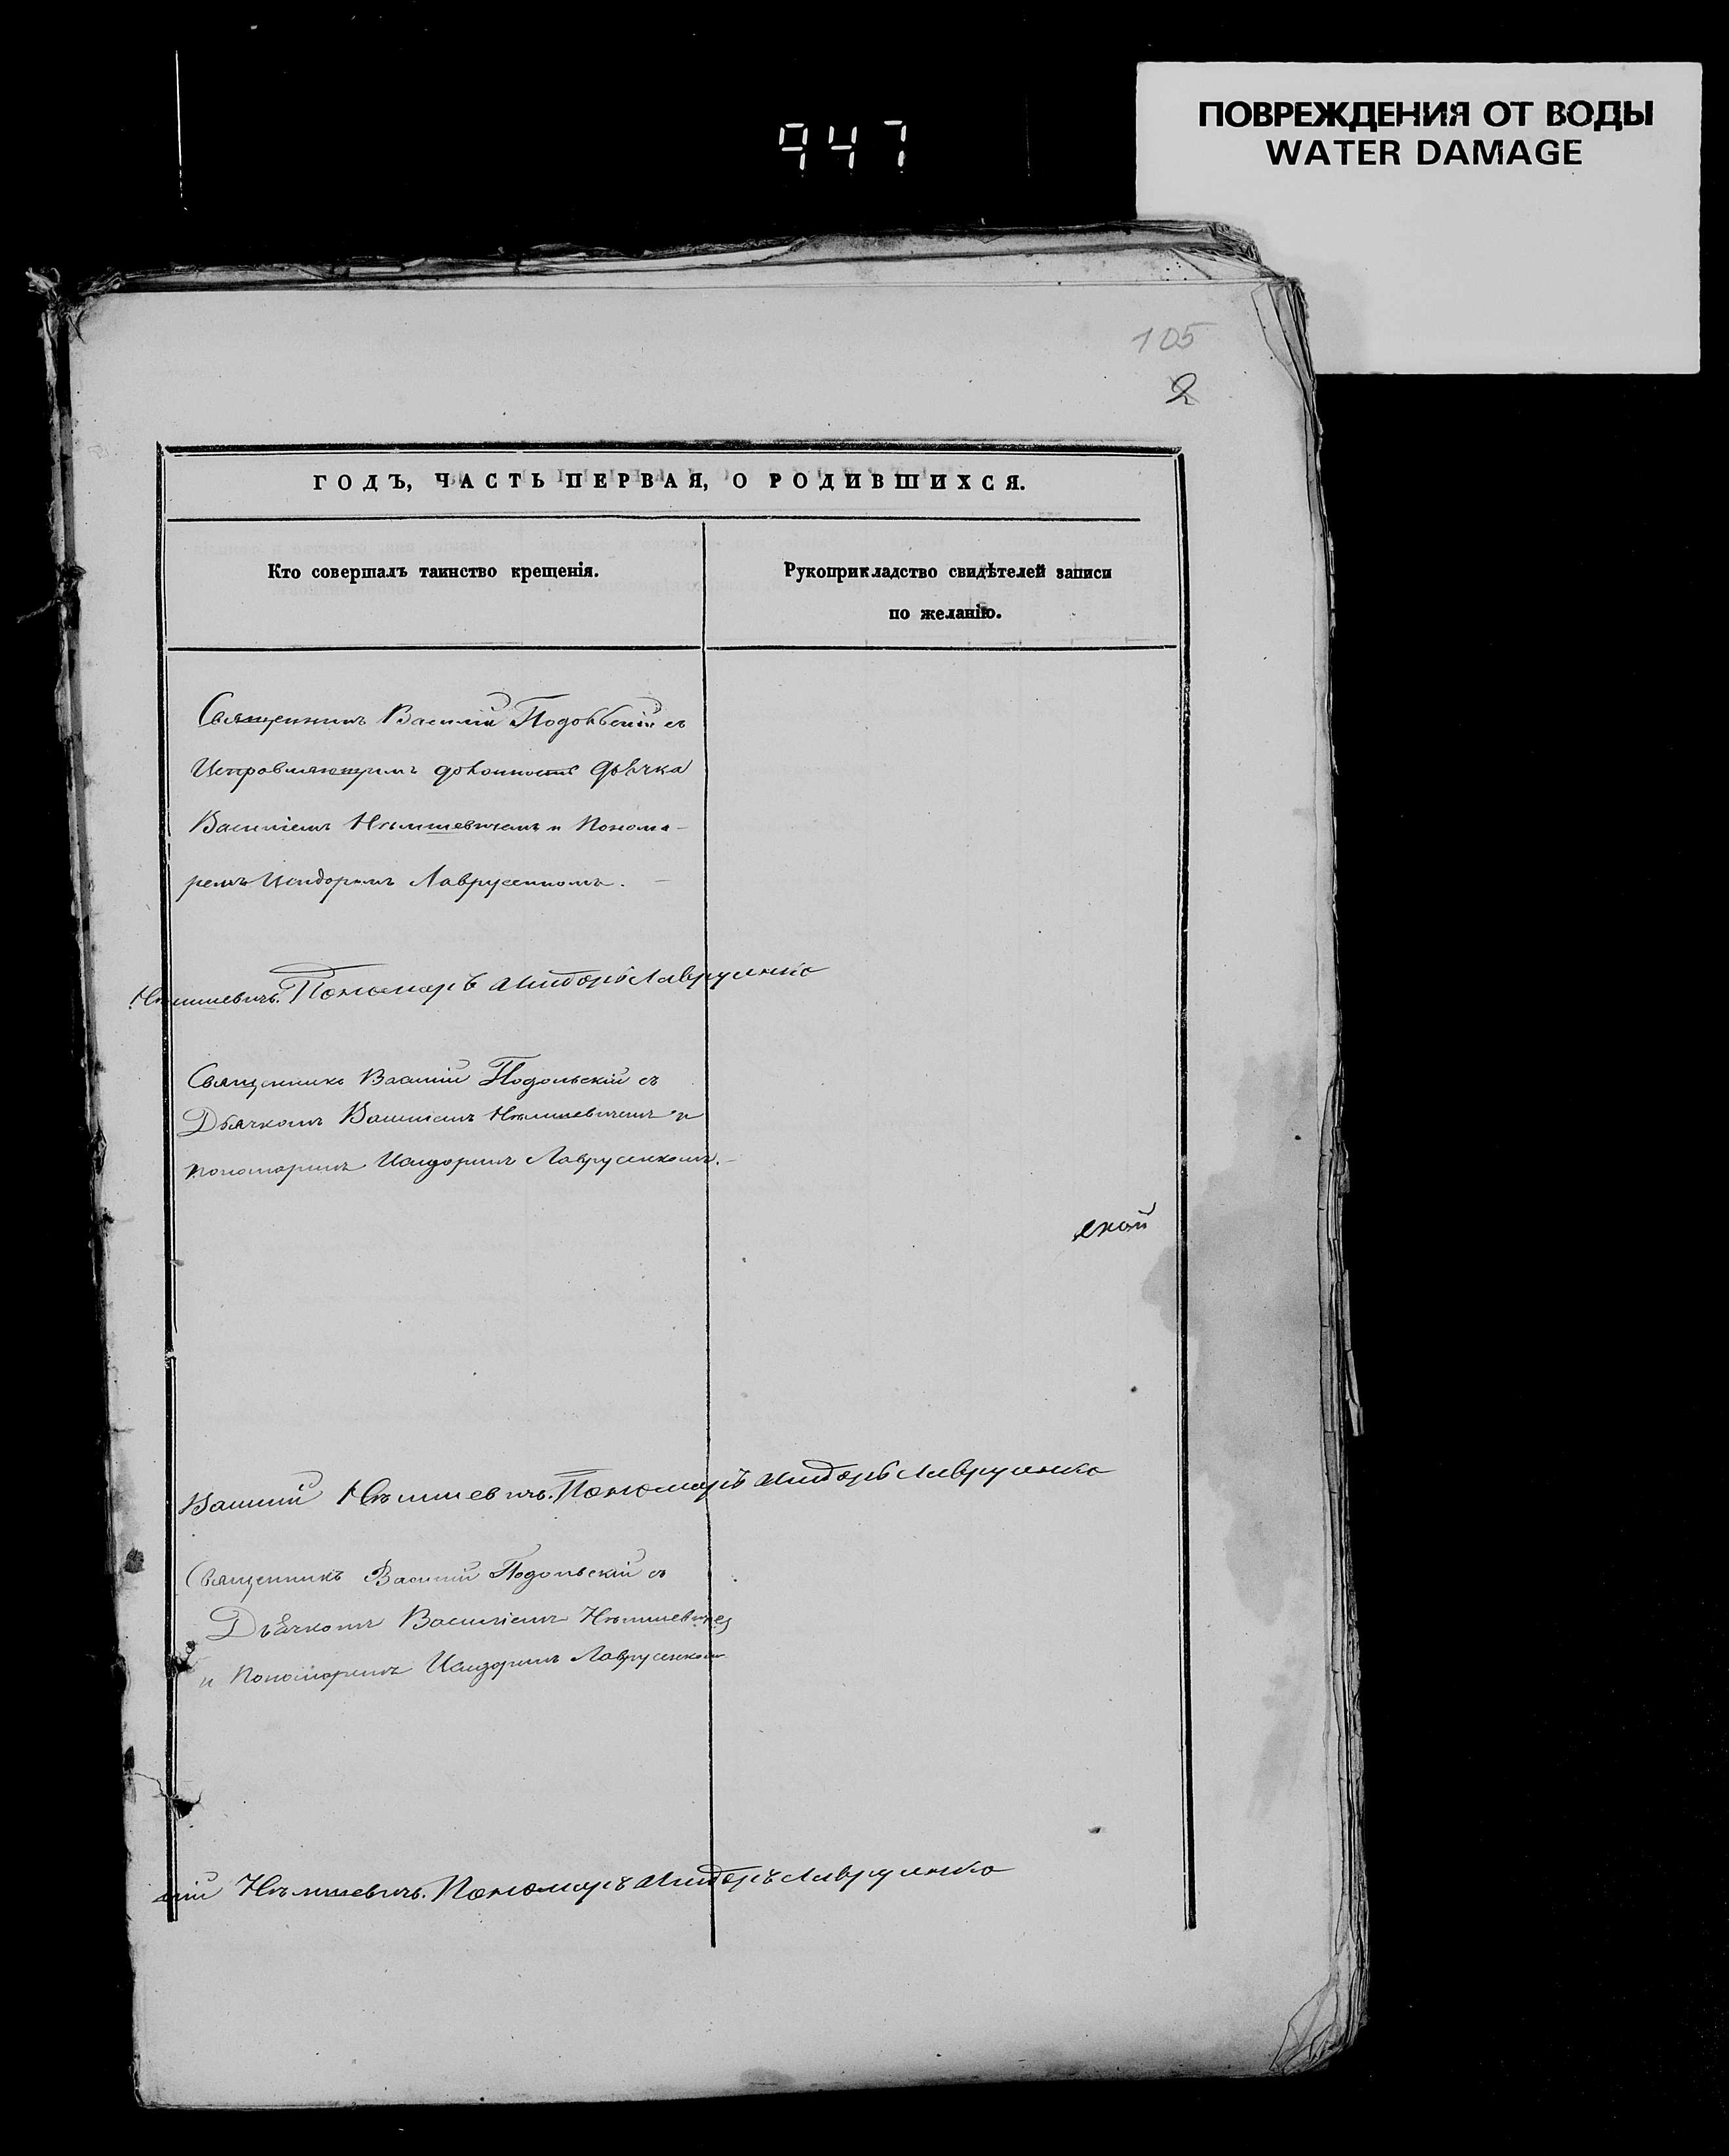 ПОВРЕЖДЕНИЯ ОТ ВОДЫ
WATER DAMAGE
947
105
2
ГОДЪ, ЧАСТЬ ПЕРВАЯ, О РОДИВШИХСЯ.
Кто совершалъ таинство крещенія.
Рукоприкладство свидѣтелей записи
по желанію.
Священникъ Василій Подольскій съ
Исправляющимъ должность Дьячка
Василіемъ Нѣмшевичемъ и Понома-
ремъ Исидоромъ Лаврусенкомъ.
Нѣмшевичъ. Пономарь Исидоръ Лаврусенко
Священникъ Василій Подольскій съ
Дьячкомъ Василіемъ Нѣмшевичемъ и
пономаремъ Исидоромъ Лаврусенкомъ.
ской
Василій Нѣмшевичъ. Пономарь Исидоръ Лаврусенко
Священникъ Василій Подольскій съ
Дьячкомъ Василіемъ Нѣмшевичем
и Пономаремъ Исидоромъ Лаврусенком
лій Нѣмшевичъ. Пономарь Исидоръ Лаврусенко